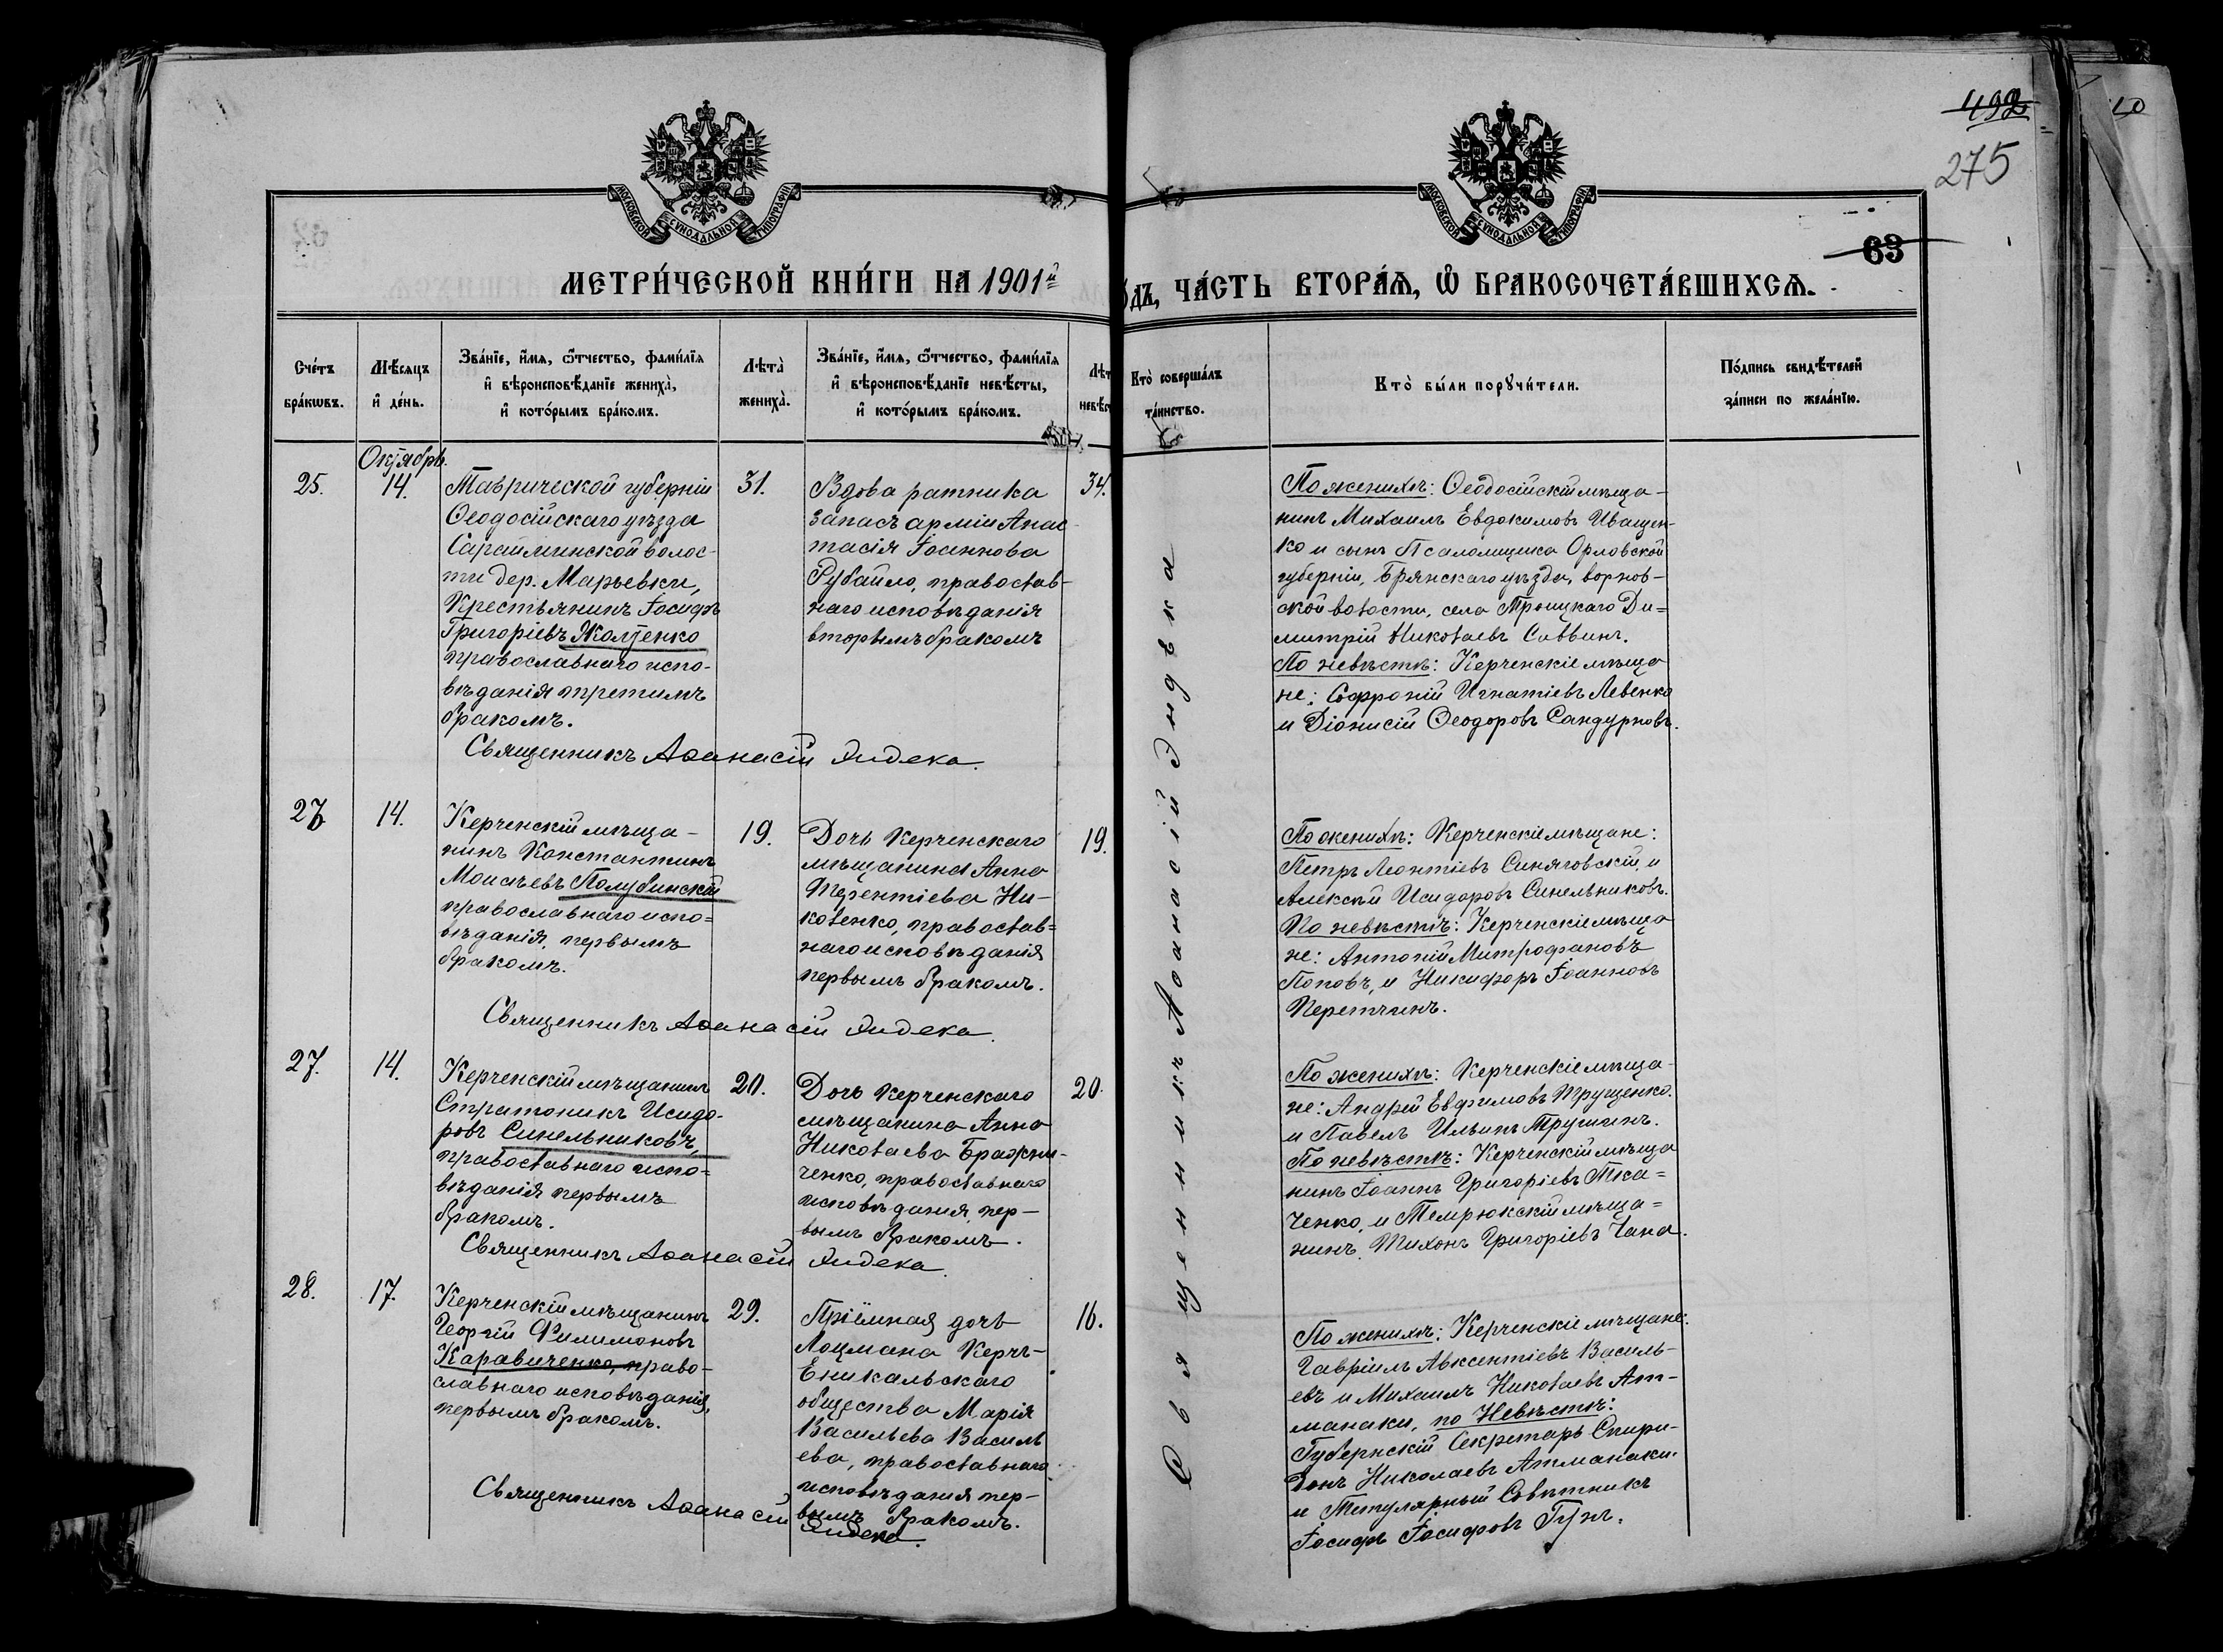 492
275
63
МОСКОВСКОЙ СУНОДАЛЬНОЙ ТИПОГРАФІИ
МОСКОВСКОЙ СУНОДАЛЬНОЙ ТИПОГРАФІИ
МЕТРИ́ЧЕСКОЙ КНИ́ГИ НА 1901й
ДЪ, ЧА́СТЬ ВТОРА́Я, Ѡ БРАКОСОЧЕТА́ВШИХСѦ.
Сче́тъ
бра́кѡвъ.
Мѣ́сяцъ
и҆ де́нь.
Зва́нїе, и҆́мѧ, ѻ҆́тчество, фами́лїѧ
и҆ вѣроисповѣ́данїе жениха̀,
и҆ кото́рымъ бра́комъ.
Лѣта̀
жениха̀.
Зва́нїе, и҆́мѧ, ѻ҆́тчество, фами́лїѧ
и҆ вѣроисповѣ́данїе невѣ́сты,
и҆ кото́рымъ бра́комъ.
Лѣт
невѣс
Кто̀ соверша́лъ
та́инство.
Кто̀ бы́ли порꙋчи́тели.
По́дпись свидѣ́телей
за́писи по жела́нїю.
Октябрь.
25.
14.
Таврической губерніи
Ѳеодосійскаго уѣзда
Сарайминской волос-
ти дер. Марьевки,
Крестьянинъ Іосифъ
Григоріевъ Жолтенко
православнаго испо-
вѣданія третимъ
бракомъ.
31.
Вдова ратника
запасъ арміи Анас-
тасія Іоаннова
Рубайло, православ-
наго исповѣданія
вторымъ бракомъ
34.
Священникъ Аѳанасій Эндека.
По женихѣ: Ѳеодосійскій мѣща-
нинъ Михаилъ Евдокимовъ Иващен-
ко и сынъ Псаломщика Орловской
губерніи, Брянскаго уѣзда, ворнов-
ской волости, села Троицкаго Ди=
митрій Николаевъ Саввинъ.
По невѣстѣ: Керченскіе мѣща
не: Софроній Игнатіевъ Левенко
и Діонисій Ѳеодоровъ Сандурновъ.
26
14.
Керченскій мѣща-
нинъ Константинъ
Моисѣевъ Полубинскій
православнаго испо=
вѣданія, первымъ
бракомъ.
19.
Дочь Керченскаго
мѣщанина Анна
Терентіева Ни-
коленко, православ=
наго исповѣданія
первымъ бракомъ.
19.
Священникъ Аѳанасій Эндека.
По женихѣ: Керченскіе мѣщане:
Петръ Леонтіевъ Синяговскій, и
Алексѣй Исидоровъ Синельниковъ.
По невѣстѣ: Керченскіе мѣща
не: Антоній Митрофановъ
Поповъ, и Никифоръ Іоанновъ
Перетчинъ.
27.
14.
Керченскій мѣщанинъ
Стратоникъ Исидо-
ровъ Синельниковъ,
православнаго испо=
вѣданія первымъ
бракомъ.
20.
Дочь Керченскаго
мѣщанина Анна
Николаева Бражни-
ченко, православнаго
исповѣданія, пер-
вымъ бракомъ.
20.
Священникъ Аѳанасій Эндека.
По женихѣ: Керченскіе мѣща-
не: Андрей Евфимовъ Трущенко.
и Павелъ Ильинъ Трушинъ.
По невѣстѣ: Керченскій мѣща
нинъ Іоаннъ Григоріевъ Тка=
ченко, и Темрюкскій мѣща=
нинъ, Тихонъ Григоріевъ Чапа.
28.
17.
Керченскій мѣщанинъ
Георгій Филимоновъ
Каравиченко, право-
славнаго исповѣданія,
первымъ бракомъ.
29.
Пріёмная дочь
Лоцмана Керчь-
Еникальскаго
общества Марія
Васильева Василь
ева, православнаго
исповѣданія пер-
вымъ бракомъ.
16.
Священникъ Аѳанасій Эндека.
По женихѣ: Керченскіе мѣщане:
Гавріилъ Авксентіевъ Василь-
евъ и Михаилъ Николаевъ Ат-
манаки, по Невѣстѣ:
Губернскій Секретарь Спири-
донъ Николаевъ Атманаки.
и Титулярный Совѣтникъ
Іосифъ Іосифовъ Гунъ.
Священникъ Аѳанасій Эндека